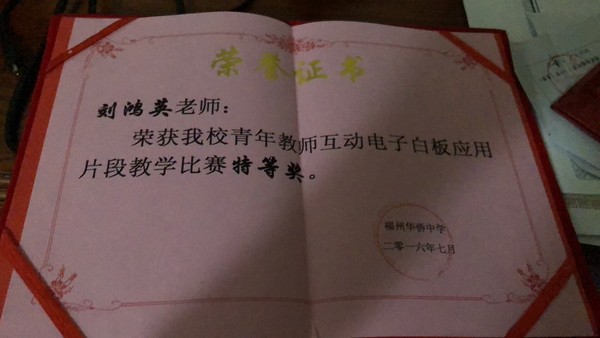 荣誉证书
刘鸿英老师：
荣获我校青年教师互动电子白板应用
片段教学比赛特等奖。
福州华侨中学
二零一六年七月